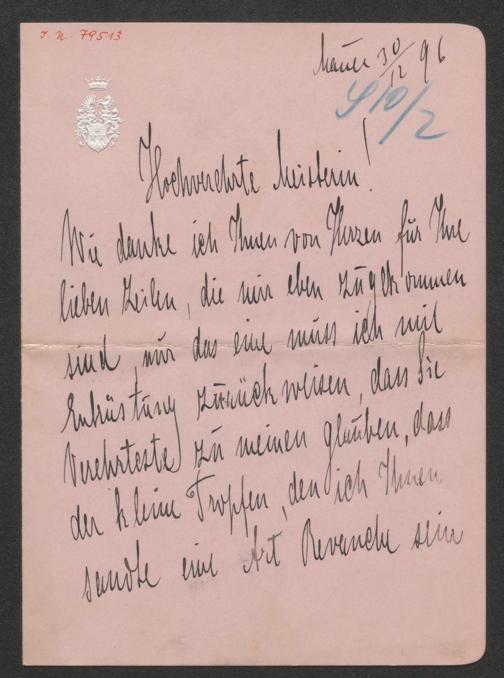 J. N. 79513
Mauer 30/12 96
S 10/2
Hochverehrte Meisterin!
Wie danke ich Ihnen von Herzen für Ihre
lieben Zeilen, die mir eben zugekommen
sind, nur das eine muss ich mit
Entrüstung zurückweisen, dass Sie
Verehrteste zu meinen glauben, dass
der kleine Tropfen, den ich Ihnen
sandte eine Art Revanche sein